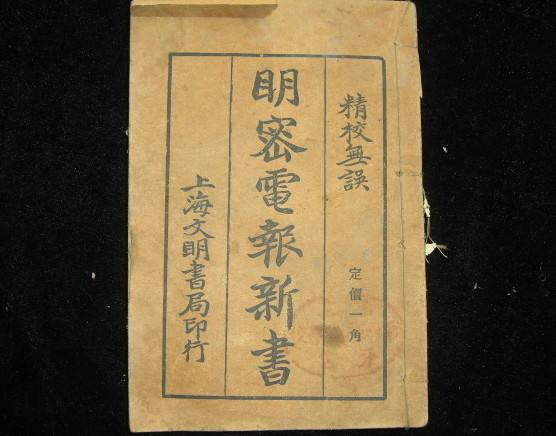 精校無誤
定價一角
明密電報新書
上海文明書局印行